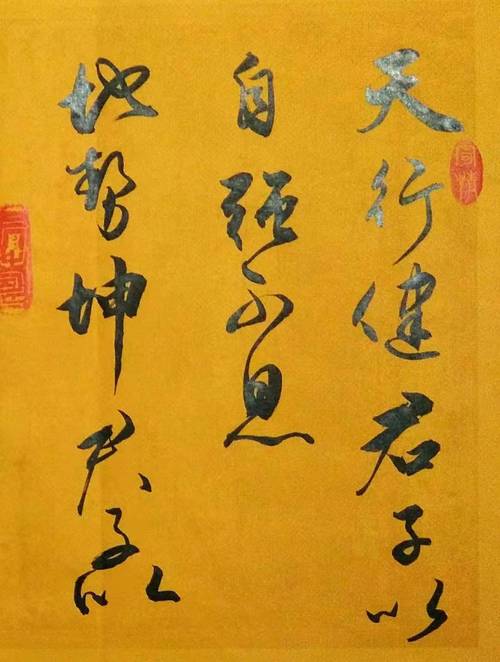 天行健君子以
自强不息
地势坤君子以